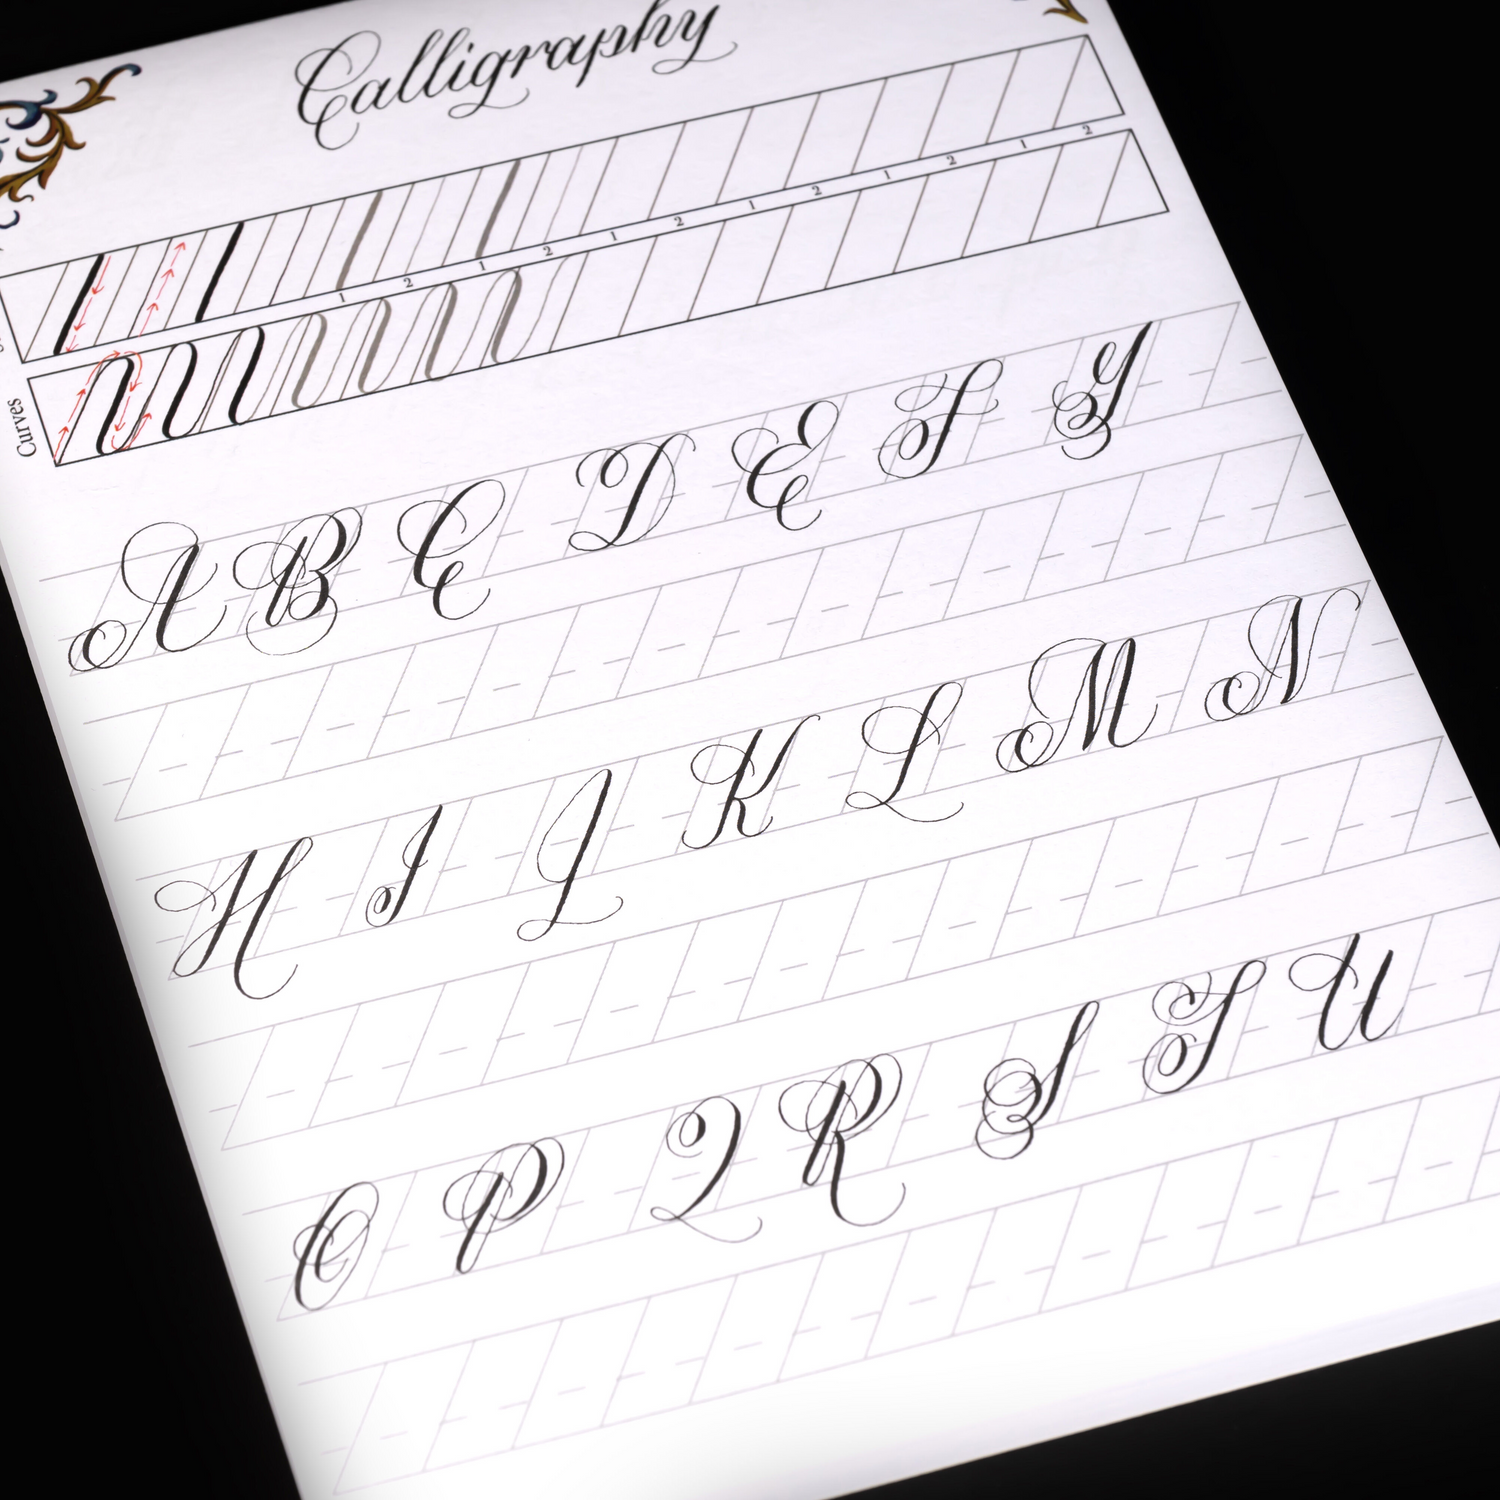 Calligraphy
1 2 1 2 1 2 1 2 1 2 1 2
Curves
A B C D E F G
H I J K L M N
O P Q R S T U